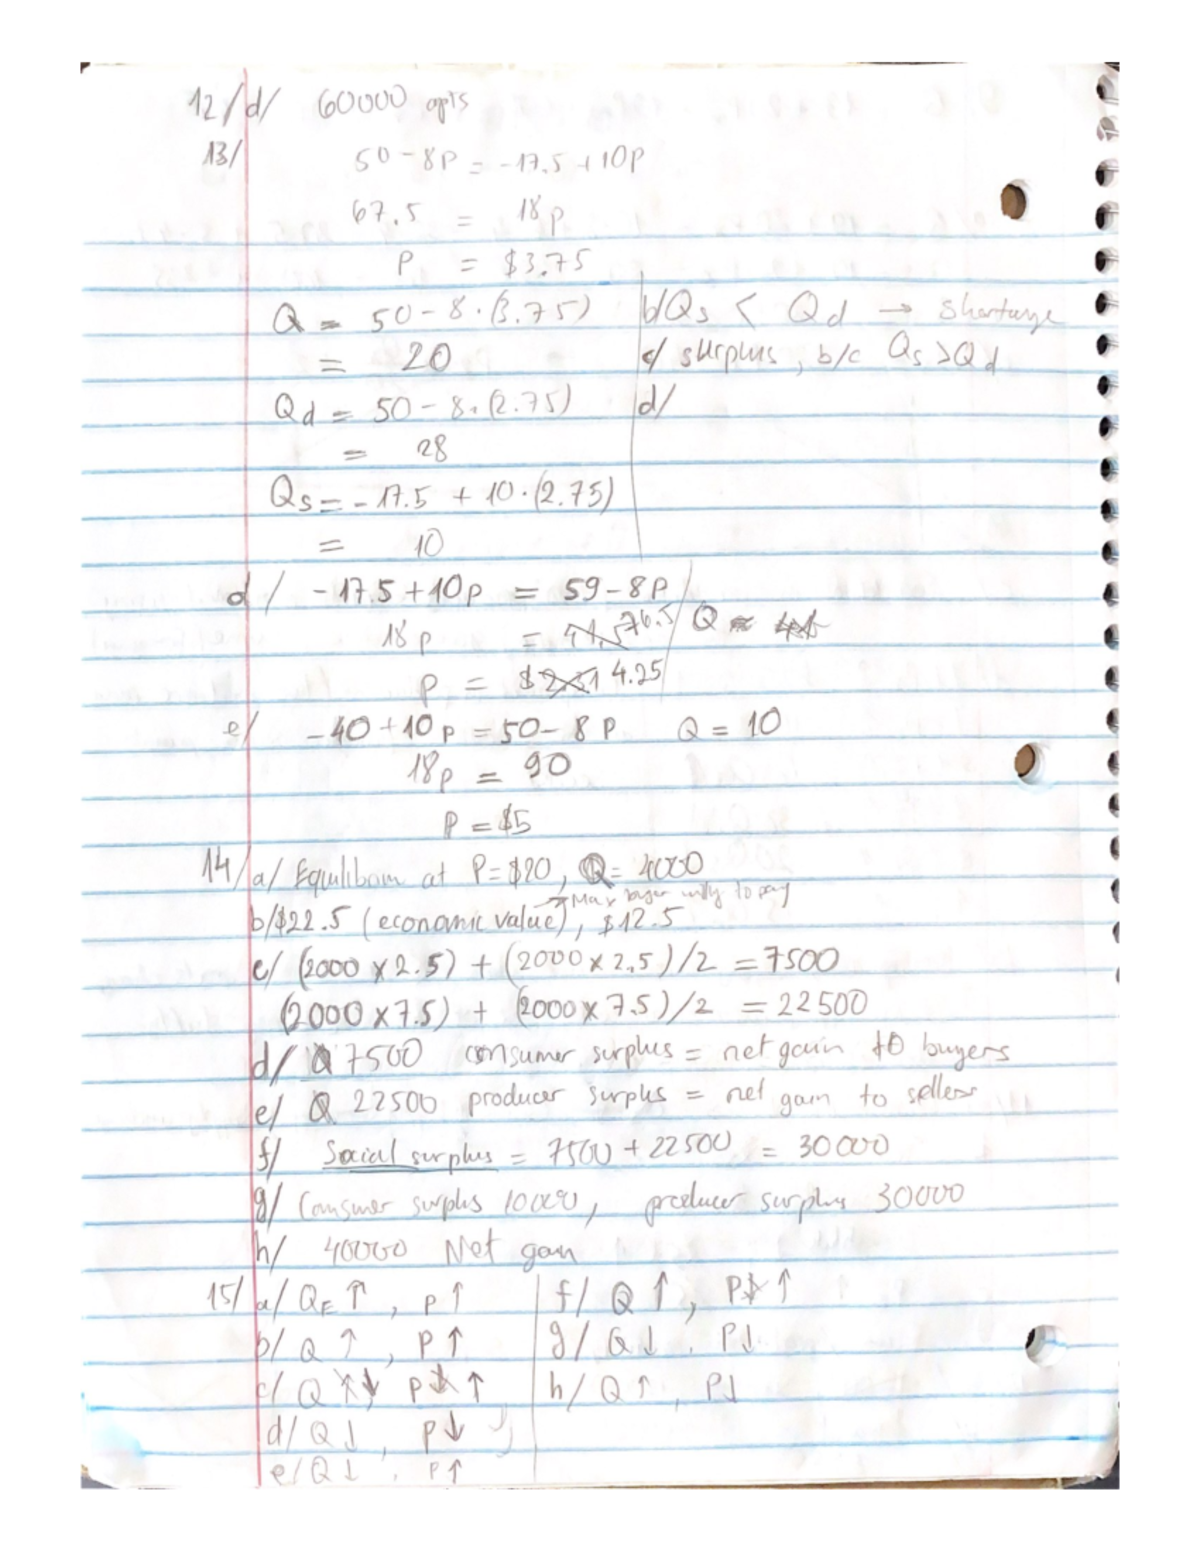 12/ d/ 60000 apts
13/ 50-8P = -17.5+10P
67.5 = 18P
P = $3.75
Q = 50-8.(3.75)
= 20
Qd = 50-8.(2.75)
= 28
Qs = -17.5 + 10.(2.75)
= 10
b/ Qs < Qd → Shortarge
c/ surplus, b/c Qs > Qd
d/
d/ -17.5+10p = 59-8P
18p = 76.5
P = $ 4.25
Q =
e/ -40+10p = 50-8P Q = 10
18p = 90
P = $5
14/ a/ Equlibam at P=$20, Q= 4000
→ Max buyer willy to pay
b/ $22.5 (economic value), $12.5
c/ (2000 x 2.5) + (2000 x 2.5)/2 = 7500
(2000 x 7.5) + (2000 x 7.5)/2 = 22500
d/ 7500 consumer surplus = net gain to buyers
e/ 22500 producer surplus = net gain to sellers
f/ Social surplus = 7500 + 22500 = 30000
g/ Consumer surplus 10000, producer surplus 30000
h/ 40000 Net gain
15/ a/ QE ↑, P ↑
b/ Q ↑, P ↑
c/ Q ↓ P ↑
d/ Q ↓, P ↓
e/ Q ↓, P ↑
f/ Q ↑, P ↑
g/ Q ↓, P ↓
h/ Q ↑, P ↓